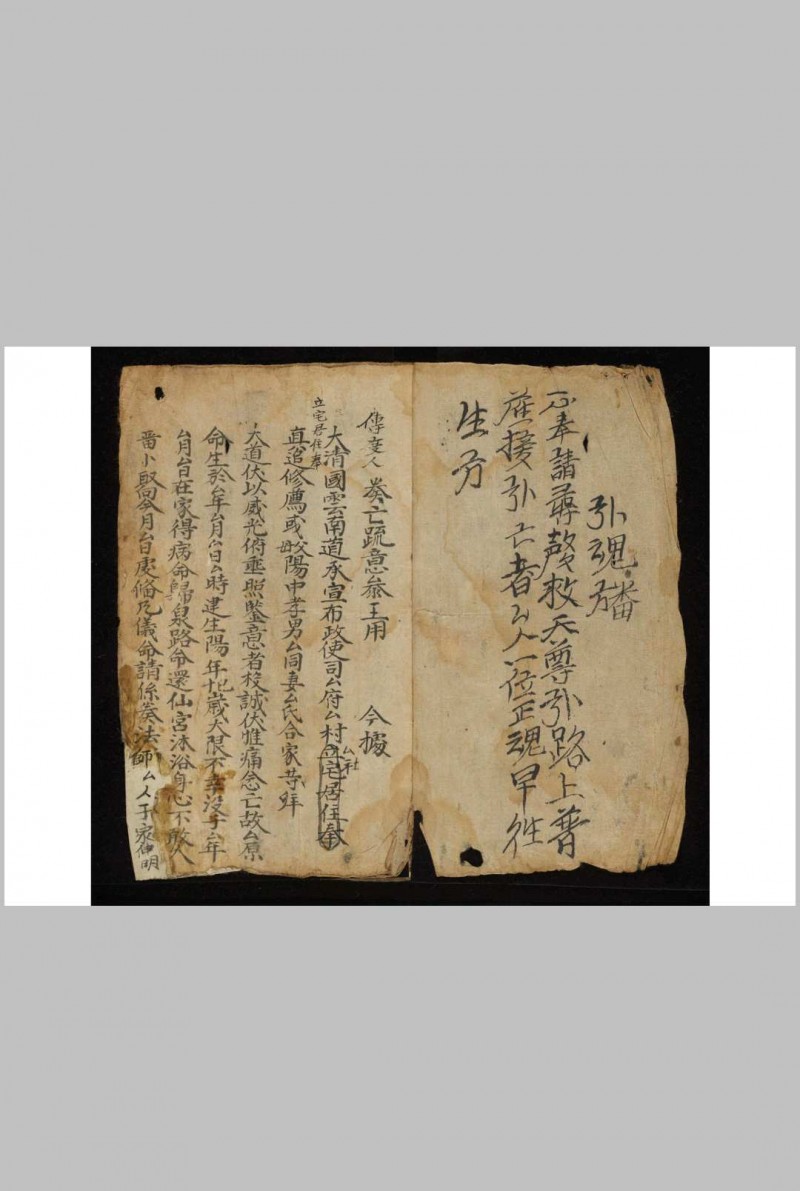 引魂旛
奉請尋聲救天尊引路上普
接引亡者厶人一位正魂早往
生方
傳度人 奏亡疏意叅王用 今據
大清國雲南道承宣布政使司厶府厶村立宅居住奉
立宅居住奉
厶社
真追修薦或故陽中孝男厶同妻厶氏合家等拜
大道伏以威光俯垂照鑒意者投誠伏惟痛念亡故厶原
命生於厶年厶月厶日厶時建生陽年歲大限不幸沒于厶年
厶月厶日在家得病命歸泉路命還仙宮沐浴身心不敢入
小 今月厶日處俻凡儀命請係奏法師厶人于冤伸明